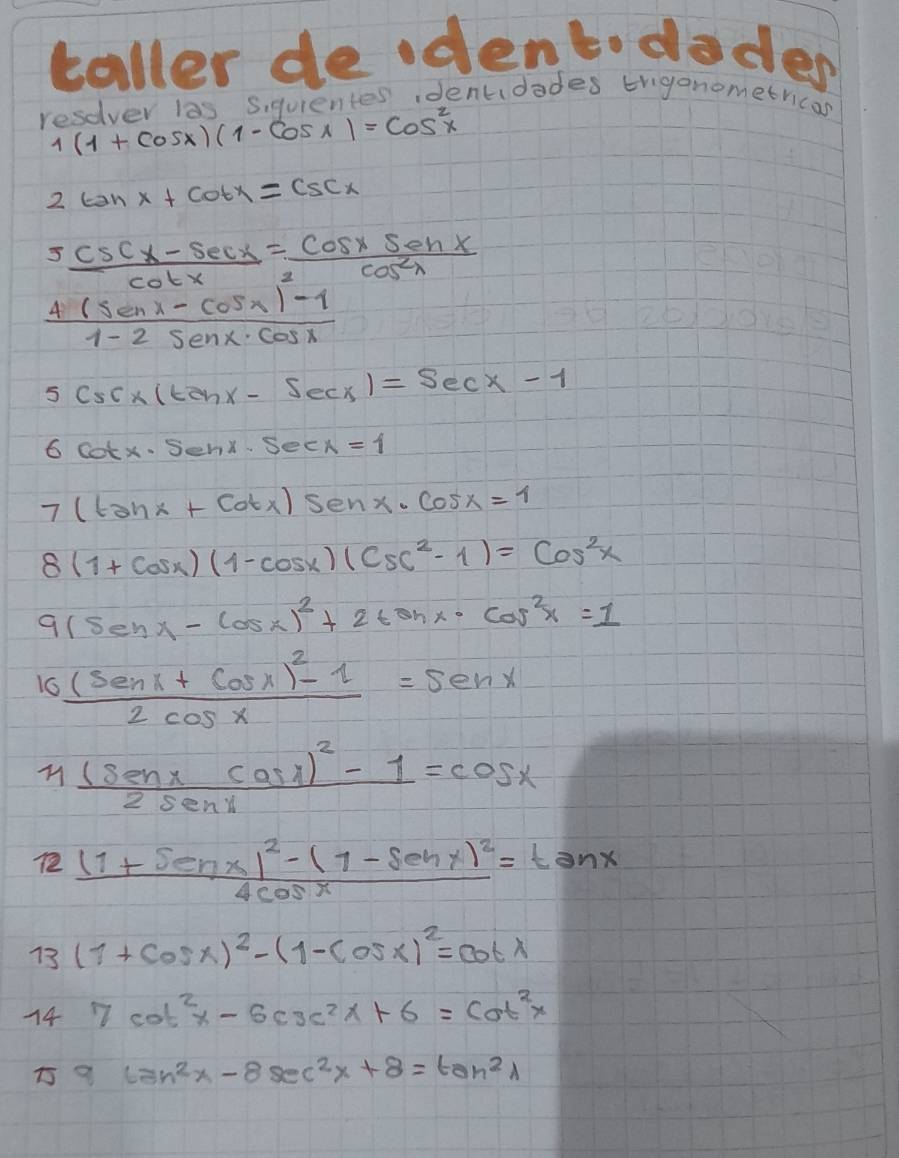 taller de identidades
resolver las siguientes identidades trigonometricas
1 (1 + cosx)(1 - Cosx) = Cos²x
2 tan x + Cotx = Cscx
3 \frac{CSCx - Secx}{cotx} = \frac{Cosx Senx}{cos²x}
4 \frac{(Senx - cosx)² - 1}{1 - 2 Senx · Cosx}
5 Cscx (tanx - Secx) = Secx - 1
6 Cotx · Senx · Secx = 1
7 (tanx + Cotx) Senx · Cosx = 1
8 (1 + Cosx)(1 - cosx)(Csc² - 1) = Cos²x
9 (Senx - Cosx)² + 2tanx · Cos²x = 1
10 \frac{(Senx + Cosx)² - 1}{2 cos x} = Senx
11 \frac{(Senx cosx)² - 1}{2 senx} = cosx
12 \frac{(1 + Senx)² - (1 - Senx)²}{4cosx} = tanx
13 (1 + Cosx)² - (1 - Cosx)² = cotx
14 7 cot²x - 6csc²x + 6 = Cot²x
15 9 tan²x - 8sec²x + 8 = tan²x